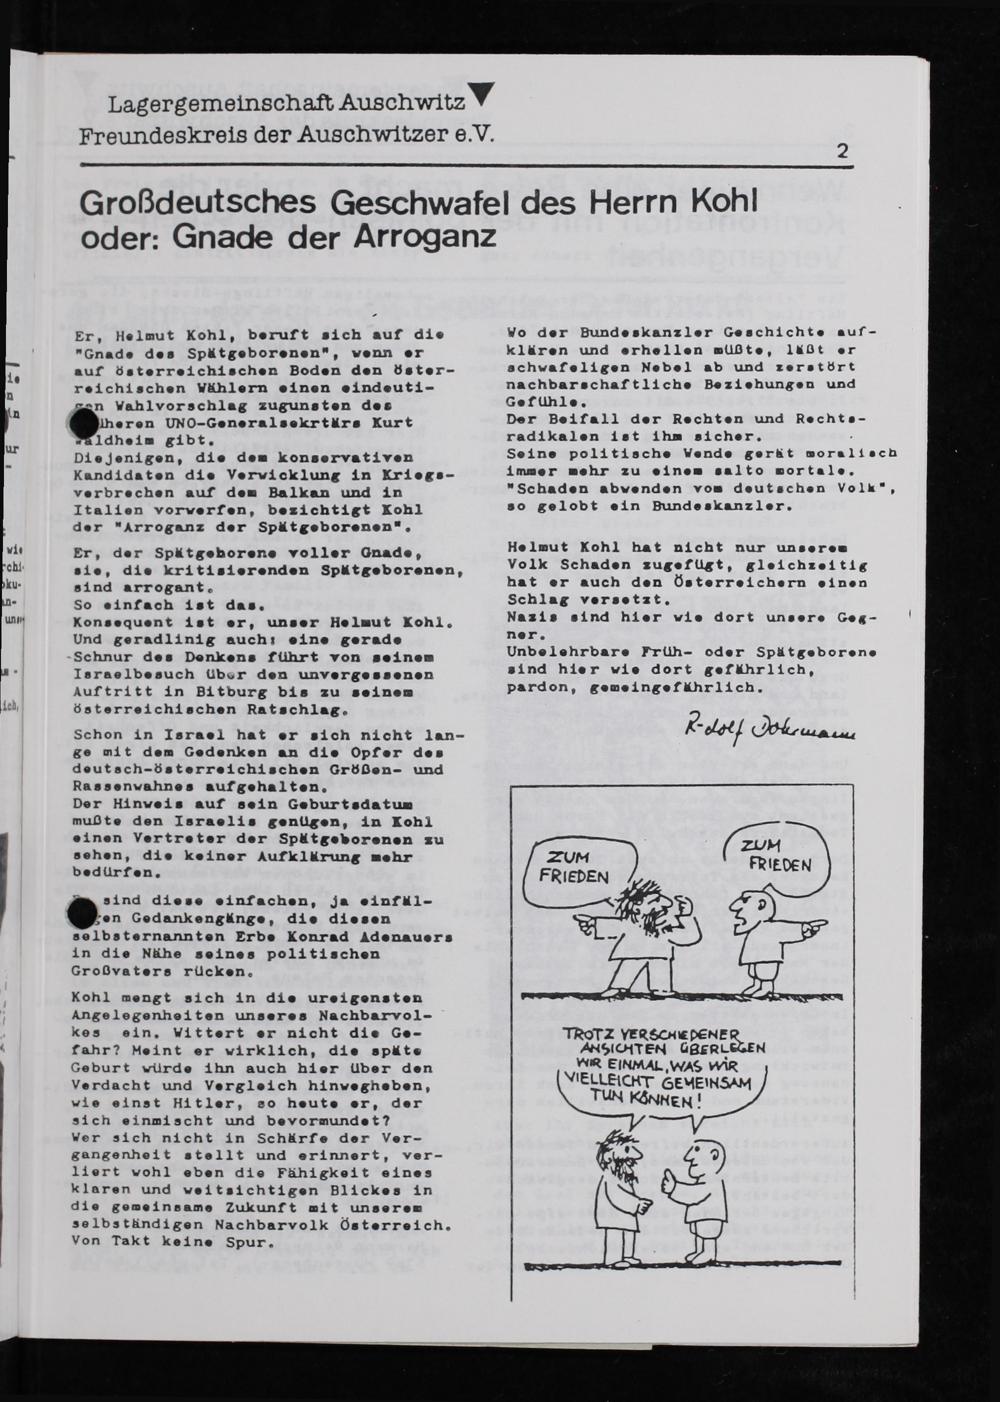 Lagergemeinschaft Auschwitz
Freundeskreis der Auschwitzer e.V.
2
Großdeutsches Geschwafel des Herrn Kohl
oder: Gnade der Arroganz
Er, Helmut Kohl, beruft sich auf die
"Gnade des Spätgeborenen", wenn er
auf österreichischen Boden den öster-
reichischen Wählern einen eindeuti-
gen Wahlvorschlag zugunsten des
üheren UNO-Generalsekrtärs Kurt
aldheim gibt.
Diejenigen, die dem konservativen
Kandidaten die Verwicklung in Kriegs-
verbrechen auf dem Balkan und in
Italien vorwerfen, bezichtigt Kohl
der "Arroganz der Spätgeborenen".
Er, der Spätgeborene voller Gnade,
sie, die kritisierenden Spätgeborenen,
sind arrogant.
So einfach ist das.
Konsequent ist er, unser Helmut Kohl.
Und geradlinig auch: eine gerade
Schnur des Denkens führt von seinem
Israelbesuch über den unvergessenen
Auftritt in Bitburg bis zu seinem
österreichischen Ratschlag.
Schon in Israel hat er sich nicht lan-
ge mit dem Gedenken an die Opfer des
deutsch-österreichischen Größen- und
Rassenwahnes aufgehalten.
Der Hinweis auf sein Geburtsdatum
mußte den Israelis genügen, in Kohl
einen Vertreter der Spätgeborenen zu
sehen, die keiner Aufklärung mehr
bedürfen.
sind diese einfachen, ja einfäl-
en Gedankengänge, die diesen
selbsternannten Erbe Konrad Adenauers
in die Nähe seines politischen
Großvaters rücken.
Kohl mengt sich in die ureigensten
Angelegenheiten unseres Nachbarvol-
kes ein. Wittert er nicht die Ge-
fahr? Meint er wirklich, die späte
Geburt würde ihn auch hier über den
Verdacht und Vergleich hinwegheben,
wie einst Hitler, so heute er, der
sich einmischt und bevormundet?
Wer sich nicht in Schärfe der Ver-
gangenheit stellt und erinnert, ver-
liert wohl eben die Fähigkeit eines
klaren und weitsichtigen Blickes in
die gemeinsame Zukunft mit unserem
selbständigen Nachbarvolk Österreich.
Von Takt keine Spur.
Wo der Bundeskanzler Geschichte auf-
klären und erhellen müßte, läßt er
schwafeligen Nebel ab und zerstört
nachbarschaftliche Beziehungen und
Gefühle.
Der Beifall der Rechten und Rechts-
radikalen ist ihm sicher.
Seine politische Wende gerät moralisch
immer mehr zu einem salto mortale.
"Schaden abwenden vom deutschen Volk",
so gelobt ein Bundeskanzler.
Helmut Kohl hat nicht nur unserem
Volk Schaden zugefügt, gleichzeitig
hat er auch den Österreichern einen
Schlag versetzt.
Nazis sind hier wie dort unsere Geg-
ner.
Unbelehrbare Früh- oder Spätgeborene
sind hier wie dort gefährlich,
pardon, gemeingefährlich.
ZUM
FRIEDEN
ZUM
FRIEDEN
TROTZ VERSCHIEDENER
ANSICHTEN ÜBERLEGEN
WIR EINMAL, WAS WIR
VIELLEICHT GEMEINSAM
TUN KÖNNEN!